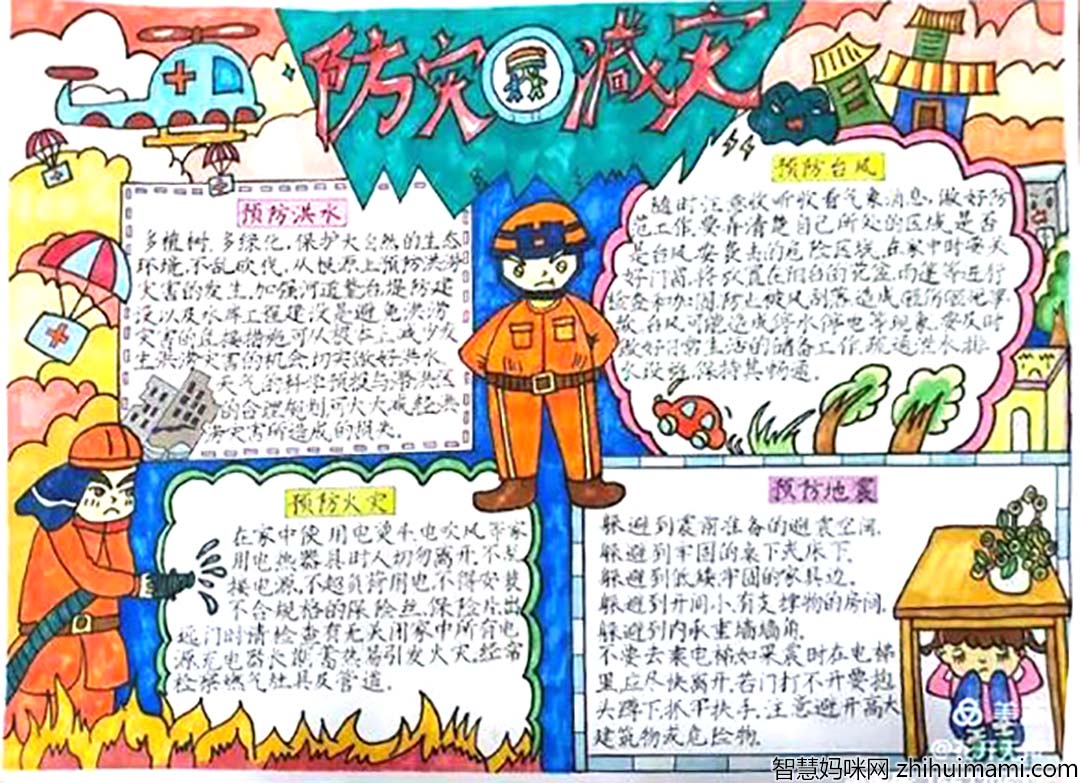 防灾减灾
预防洪水
多植树,多绿化,保护大自然的生态
环境,不乱砍伐,从根源上预防洪涝
灾害的发生.加强河道整台,堤防建
设以及水库工程建设是避免洪涝
灾害的直接措施,可从根本上减少发
生洪涝灾害的机会,切实做好洪水
天气的科学预报与滞洪区
的合理规划可大大减轻洪
涝灾害所造成的损失.
预防台风
随时注意收听收看气象消息,做好防
范工作,要弄清楚自己所处的区域是否
是台风要袭击的危险区域,在家中时要关
好门窗,将放置在阳台的花盆,雨蓬等进行
检查和加固,防止被风刮落造成
台风可能造成停水停电等现象,要及时
做好日常生活的储备工作,疏通洪水排
水设施,保持其畅通.
预防火灾
在家中使用电烫斗,电吹风等家
用电热器具时人切勿离开,不乱
接电源,不超负荷用电,不得安装
不合规格的保险丝,保险片,出
远门时请检查有无关闭家中所有电
源,充电器长期蓄热易引发火灾,经常
检察燃气灶具及管道.
预防地震
躲避到震前准备的避震空间.
躲避到牢固的桌下或床下.
躲避到低矮牢固的家具边.
躲避到开间小,有支撑物的房间.
躲避到内承重墙墙角.
不要去乘电梯如果震时在电梯
里,应尽快离开,若门打不开要抱
头蹲下,抓牢扶手,注意避开高大
建筑物或危险物.
智慧妈咪网 zhihuimami.com